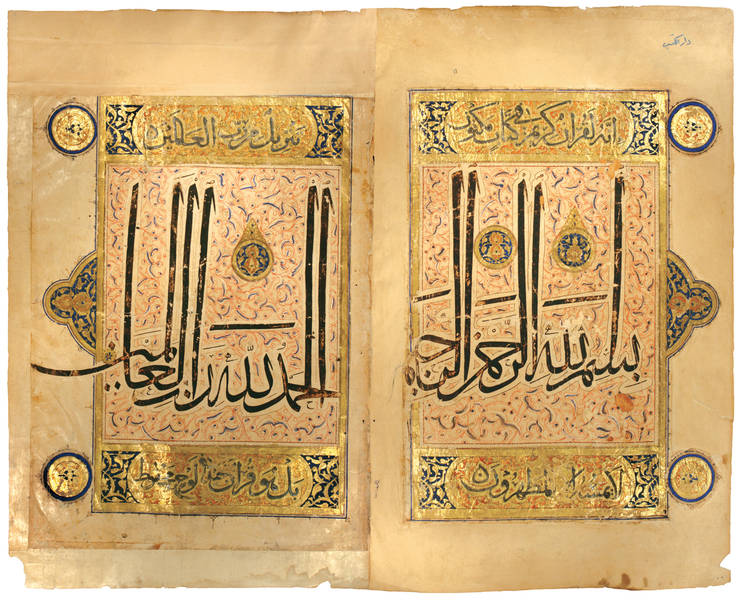 دار الكتب
انه لقران كريم في كتاب مكنون
بسم الله الرحمن الرحيم
لا يمسه الا المطهرون
تنزيل من رب العالمين
الحمد لله رب العالمين
بل هو قران مجيد في لوح محفوظ